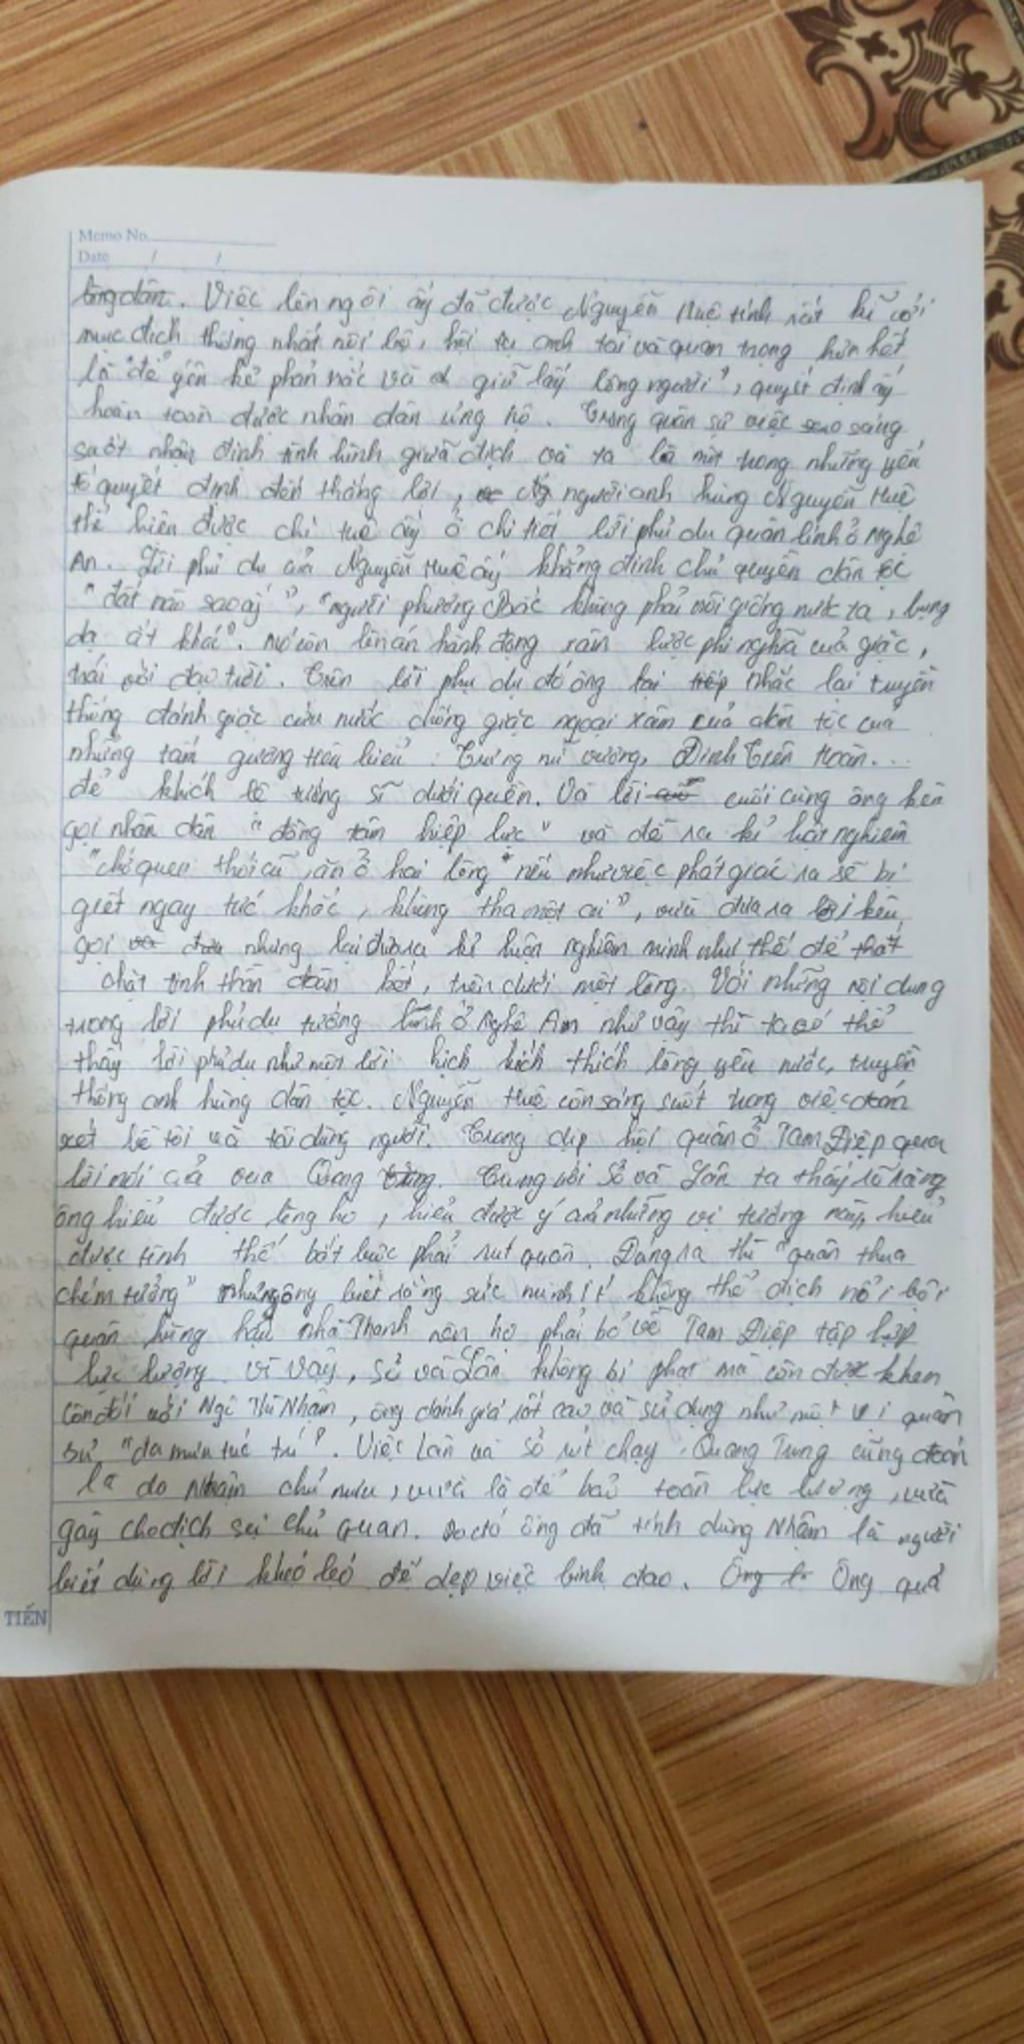 Memo No.
Date / /
lòng dân. Việc lên ngôi ấy đã được Nguyễn Huệ tính rất kĩ với
mục đích thống nhất nội bộ, hội tụ anh tài và quan trọng hơn hết
là "để yên kẻ phản trắc và giữ lấy lòng người", quyết định ấy
hoàn toàn được nhân dân ủng hộ. Trong quân sự việc sáng
suốt nhận định tình hình giữa địch và ta là một trong những yếu
tố quyết định đến thắng lợi, người anh hùng Nguyễn Huệ
thể hiện được chí tuệ ấy ở chi tiết lời phủ dụ quân lính ở Nghệ
An. Lời phủ dụ của Nguyễn Huệ ấy khẳng định chủ quyền dân tộc
"đất nào sao ấy", "người phương Bắc không phải nòi giống nước ta, bụng
dạ ắt khác". Nó còn lên án hành động xâm lược phi nghĩa của giặc,
trái với đạo trời. Trên lời phụ dụ đó ông lại tiếp nhắc lại truyền
thống đánh giặc cứu nước chống giặc ngoại xâm của dân tộc của
những tấm gương tiêu biểu: Trưng nữ vương, Đinh Tiên Hoàn...
để khích lệ tướng sĩ dưới quyền. Và lời cuối cùng ông kêu
gọi nhân dân "đồng tâm hiệp lực" và đề ra kỉ luật nghiêm
"chớ quen thói cũ, ăn ở hai lòng" nếu như việc phát giác ra sẽ bị
giết ngay tức khắc, không tha một ai", vừa đưa ra lời kêu
gọi và đưa nhưng lại đưa ra kỉ luận nghiêm minh như thế để thắt
chặt tinh thần đoàn kết, trên dưới một lòng. Với những nội dung
trong lời phủ dụ tướng lính ở Nghệ An như vậy thì ta có thể
thấy lời phủ dụ như một lời hịch kích thích lòng yêu nước, truyền
thống anh hùng dân tộc. Nguyễn Huệ còn sáng suốt trong việc đoán
xét bề tôi và tài dùng người. Trong dịp hội quân ở Tam Điệp qua
lời nói của vua Quang Trung với Sở và Lân ta thấy rõ ràng
ông hiểu được lòng họ, hiểu được ý của những vị tướng này, hiểu
được tình thế bắt buộc phải rút quân. Đáng ra thì "quân thua
chém tướng" nhưng ông biết rõ ng sức mình ít không thể địch nổi đội
quân hùng hậu nhà Thanh nên họ phải bỏ về Tam Điệp tập hợp
lực lượng. Vì vậy, Sở và Lân không bị phạt mà còn được khen
Còn đối với Ngô Thì Nhậm, ông đánh giá rất cao và sử dụng như một vị quân
sư "đa mưu túc trí". Việc Lân và Sở rút chạy, Quang Trung cũng đoán
là do Nhậm chủ mưu, vừa là để bảo toàn lực lượng, vừa
gây cho địch sự chủ quan. Do đó ông đã tính dùng Nhậm là người
biết dùng lời khéo léo để dẹp việc binh đao. Ông là Ông quả
TIẾN